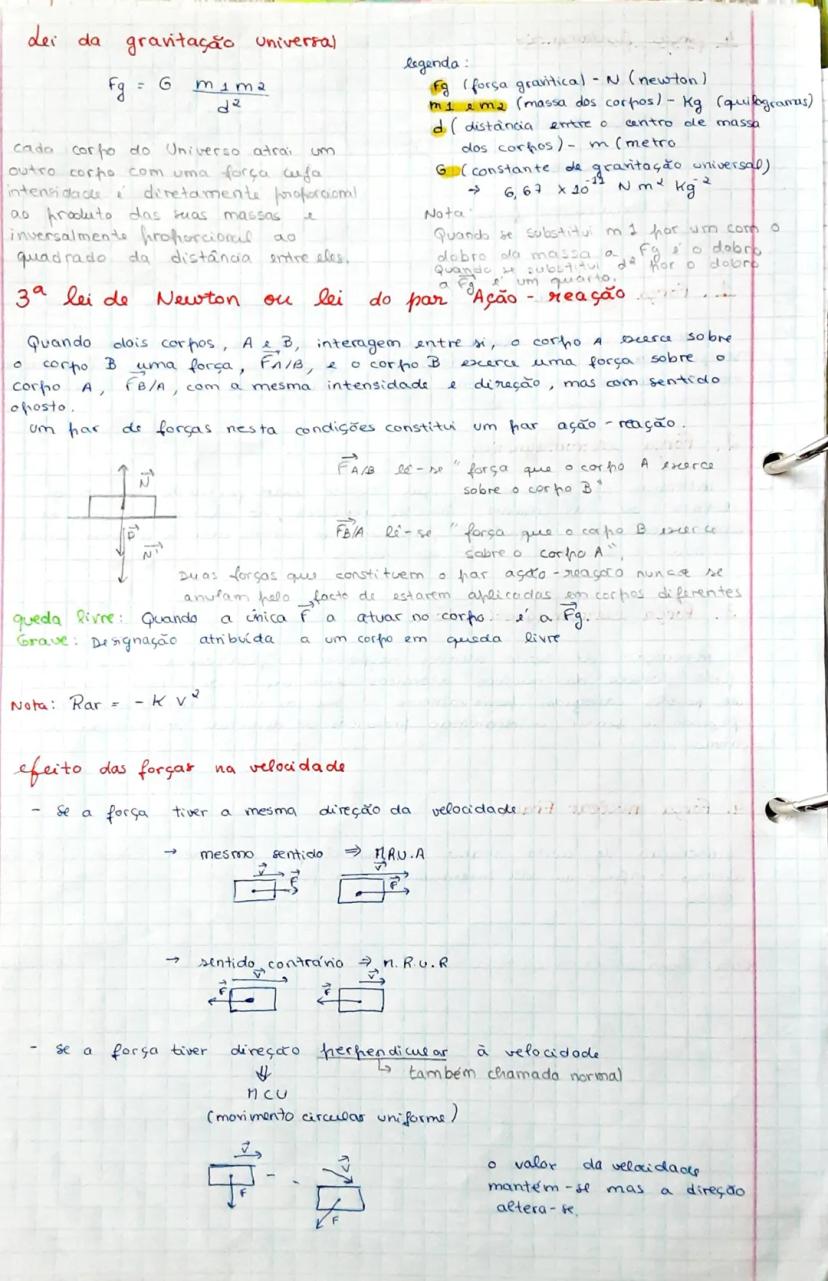 Lei da gravitação universal
Fg = G m1m2
d²
legenda:
Fg (força gravítica) - N (newton)
m1 e m2 (massa dos corpos) - Kg (quilogramas)
d (distância entre o centro de massa
dos corpos) - m (metro
G (constante de gravitação universal)
→ 6,67 × 10⁻¹¹ N m² Kg⁻²
cada corpo do Universo atrai um
outro corpo com uma força cuja
intensidade é diretamente proporcional
ao produto das suas massas e
inversalmente proporcional ao
quadrado da distância entre eles.
Nota:
Quando se substitui m1 por um com o
dobro da massa a Fg é o dobro
Quando se substitui d² por o dobro
a Fg é um quarto.
3ª lei de Newton ou lei do par Ação - reação
Quando dois corpos, A e B, interagem entre si, o corpo A exerce sobre
o corpo B uma força, FA/B, e o corpo B exerce uma força sobre o
corpo A, FB/A, com a mesma intensidade e direção, mas com sentido
oposto.
Um par de forças nesta condições constitui um par ação - reação.
N
P
N'
FA/B lê-se "força que o corpo A exerce
sobre o corpo B"
FB/A lê-se "força que o corpo B exerce
sobre o corpo A".
Duas forças que constituem o par ação-reação nunca se
anulam pelo facto de estarem aplicadas em corpos diferentes
queda livre: Quando a única F a atuar no corpo é a Fg.
Grave: Designação atribuída a um corpo em queda livre
Nota: Rar = - K v²
efeito das forças na velocidade
- Se a força tiver a mesma direção da velocidade
→ mesmo sentido ⇒ M.R.U.A
v F v F
→ sentido contrário ⇒ M.R.U.R
F v F v
- Se a força tiver direção perpendicular à velocidade
↳ também chamada normal
⇓
MCU
(movimento circular uniforme)
v F v F
o valor da velocidade
mantém-se mas a direção
altera-se.